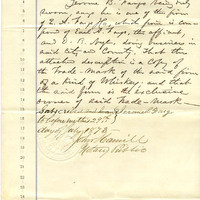 Jerome B. Fargo being duly
sworn says he is one of the firm
of E. A. Fargo & Co, which firm is com-
posed of Earl A. Fargo, the affiant,
and D. B. doing business in
said City and County, That the
attached description is a copy of
the Trade-Mark of the said firm
of a kind of Whiskey, and that
the said firm is the exclusive
owner of said Trade-Mark
Subscribed and sworn
before me this 29th
day of July 1873
Notary Public